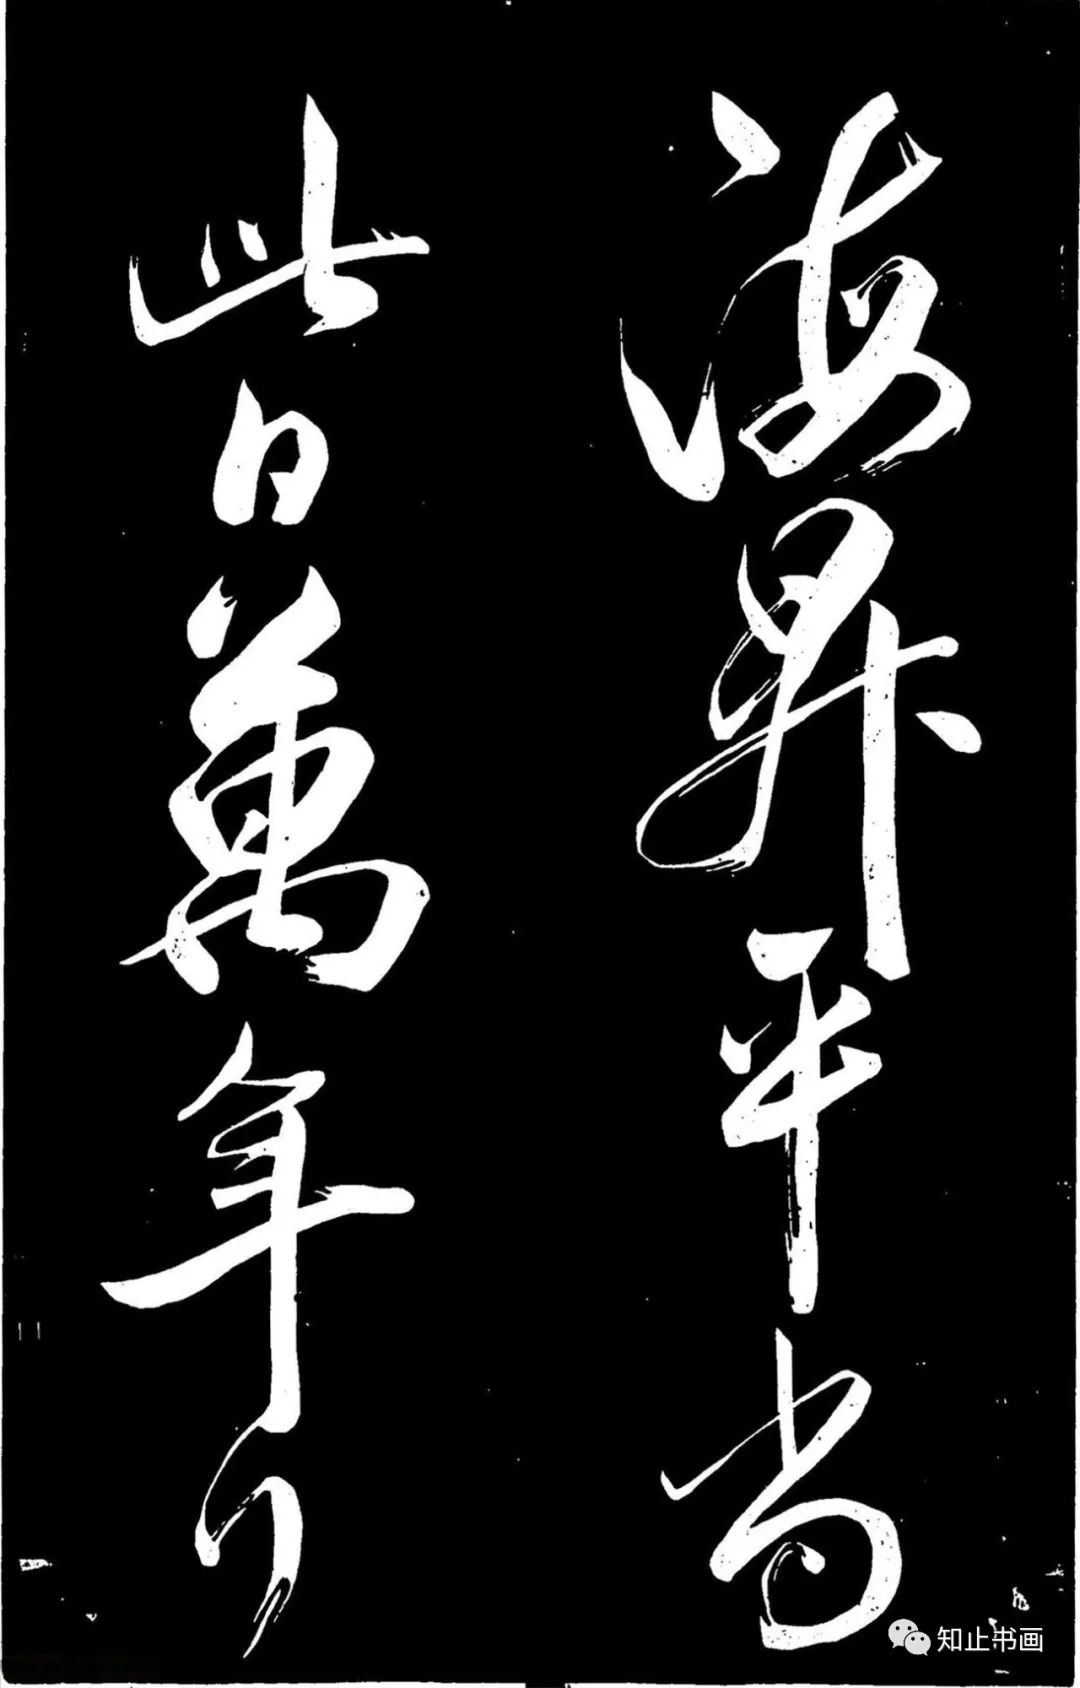 海昇平當
此日萬年
知止书画